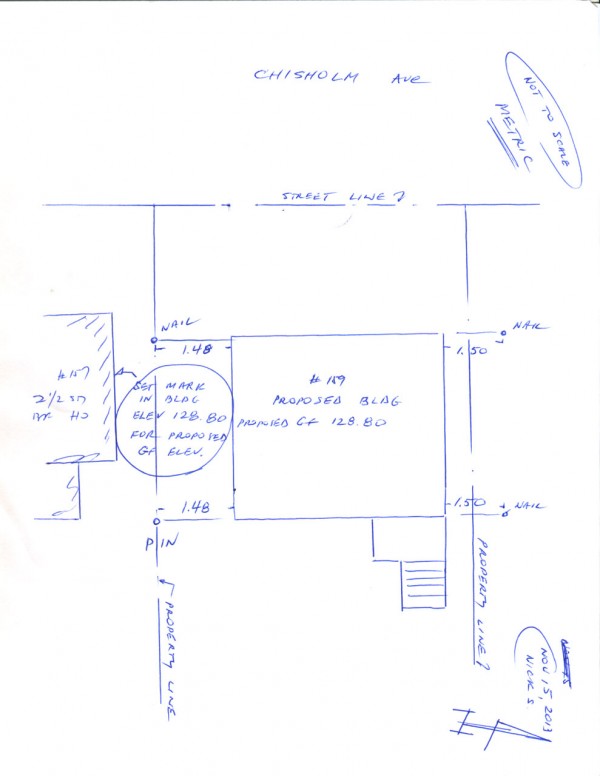 CHISHOLM AVE
NOT TO SCALE
METRIC
STREET LINE
NAIL
NAIL
1.48
1.50
#157
2 1/2 ST
BR HO
SET MARK
IN BLDG
ELEV 128.80
FOR PROPOSED
GF ELEV.
#159
PROPOSED BLDG
PROPOSED GF 128.80
1.48
1.50
NAIL
PIN
PROPERTY LINE
PROPERTY LINE
NOV 15, 2013
NICK S